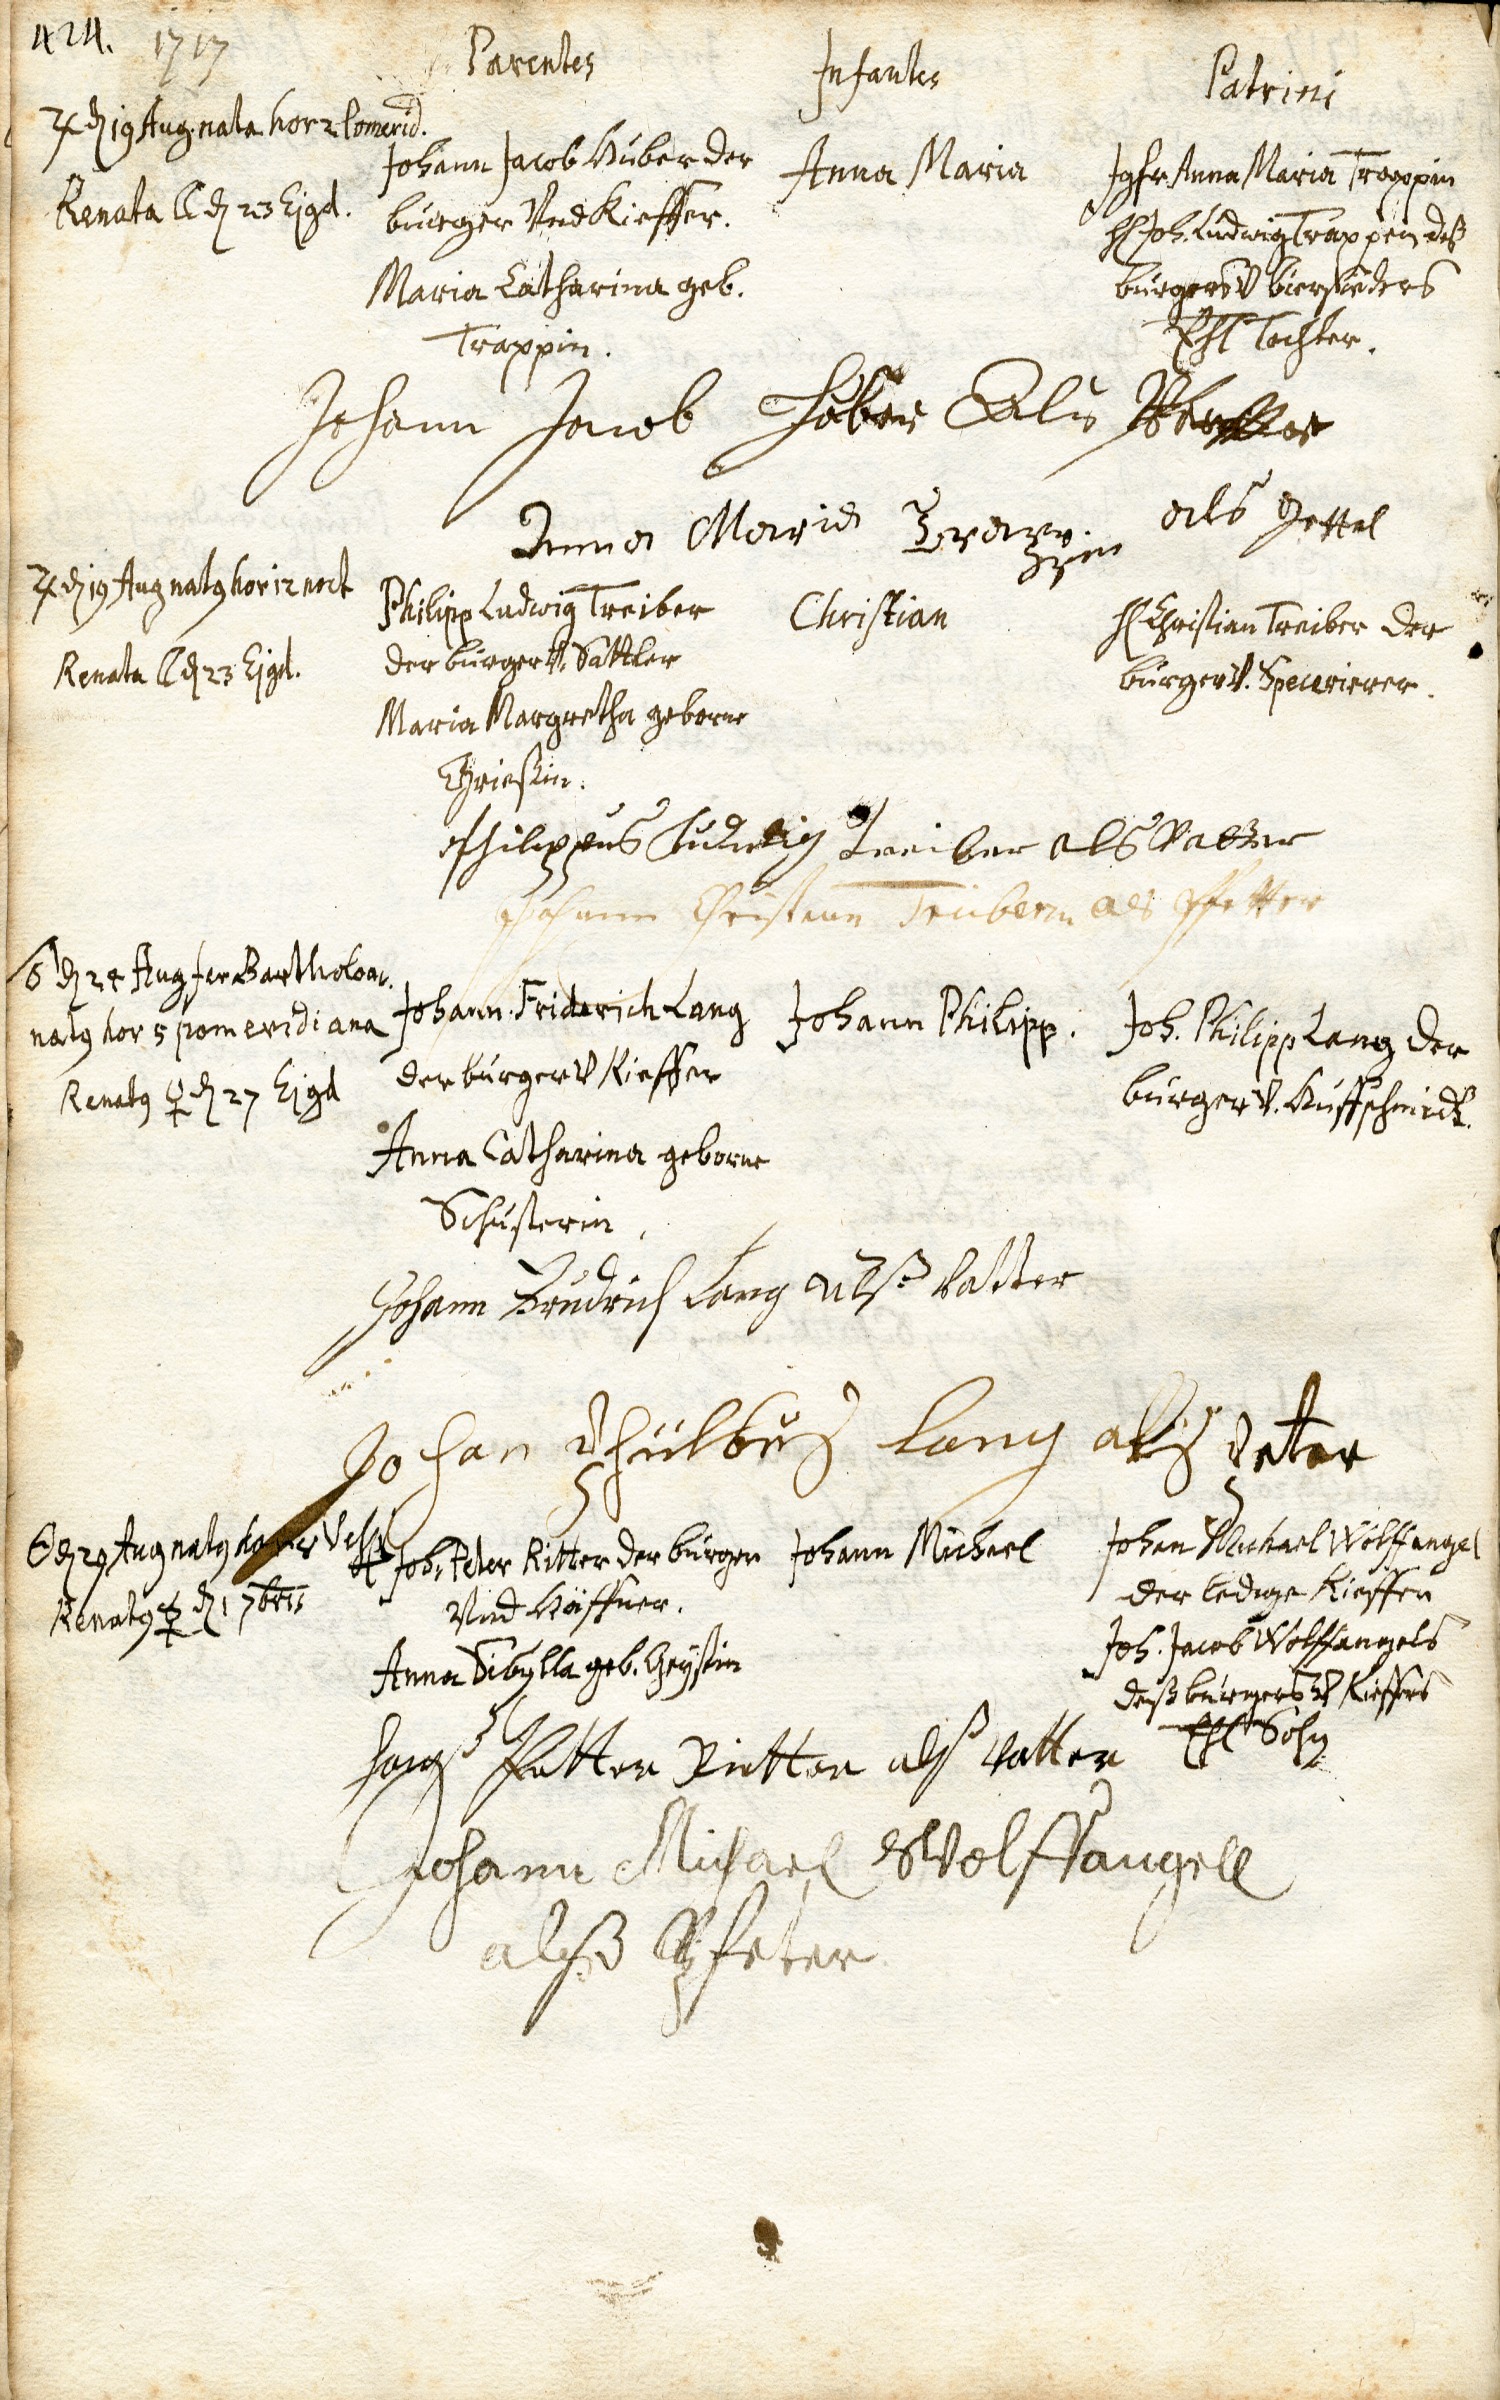 424. 1717
Parentes
Infantes
Patrini
♃ d 19 Aug. nata hor 2 pomerid.
Renata ☾ d 23 Ejgd.
Johann Jacob Huber der
burger Und Kieffer.
Maria Catharina geb.
Trappin.
Anna Maria
Jgfr Anna Maria Trappin
H Joh. Ludwig Trappen deß
burgers V biersieders
Ehl Tochter.
Johann Jacob Huber Als
Anna Maria Trapp:
pin als Gettel
♃ d 19 Aug natg hor 12 noct
Renata ☾ d 23 Ejgd.
Philipp Ludwig Treiber
der burger V. Sattler
Maria Margretha geborne
Grießin.
Christian
H Christian Treiber der
burger V. Specerierer.
Philippus Ludwig Treiber als Vatter
Johann Christian Treibern als Pfetter
♂ d 24 Aug fer Bartholom.
natg hor 5 pomeridiana
Renatg ♀ d 27 Ejgd
Johann Friderich Lang
der burger V Kieffer
Anna Catharina geborne
Schusterin.
Johann Philipp.
Joh. Philipp Lang der
burger V. Huffschmidt.
Johann Fridrich Lang alß Vatter
Johan Philbus Lang alß Petter
d 29 Aug natg hor
Renatg ☿ d 1 7bris
Joh. Peter Ritter der burger
Und Häffner.
Anna Sibylla geb. Geystin
Johann Michael
Johan Michael Wolffangel
der ledige Kieffer
Joh. Jacob Wolffangels
deß burgers V Kieffers
Ehl Sohn
Hanß Petter Rietter alß Vatter
Johann Michael Wolffangell
alß Pfeter